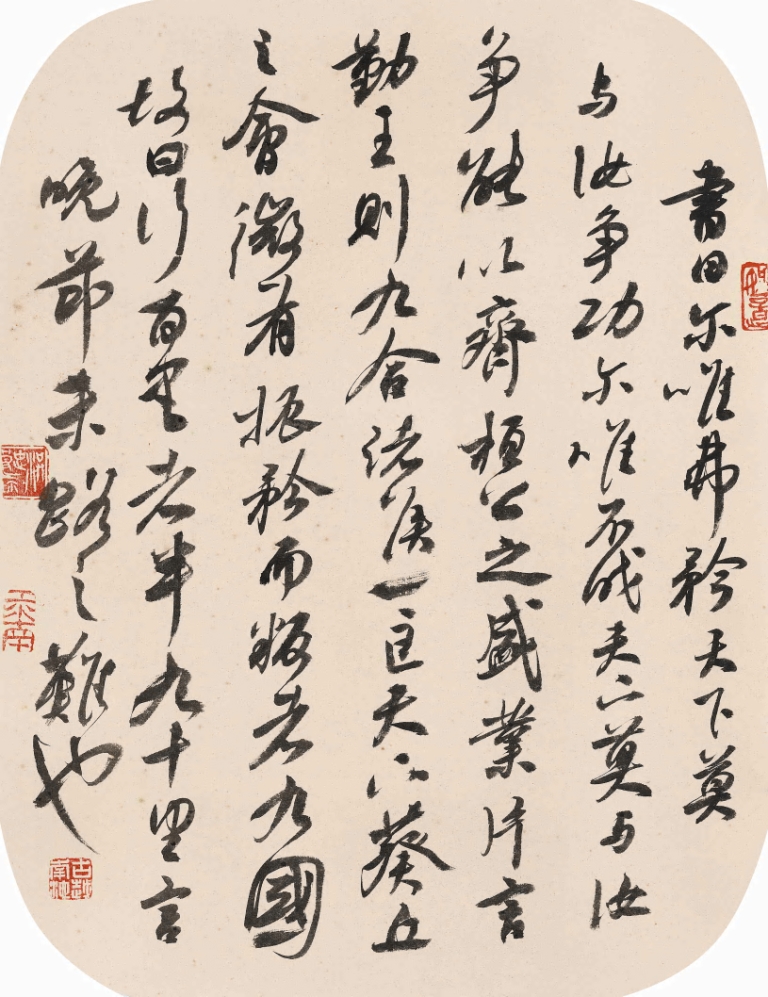 書曰尔唯弗矜天下莫
与汝争功尔唯不伐天下莫与汝
争能以齊桓公之盛業片言
勤王則九合諸侯一匡天下葵丘
之會微有振矜而叛者九國
故曰行百里者半九十里言
晚節末路之難也